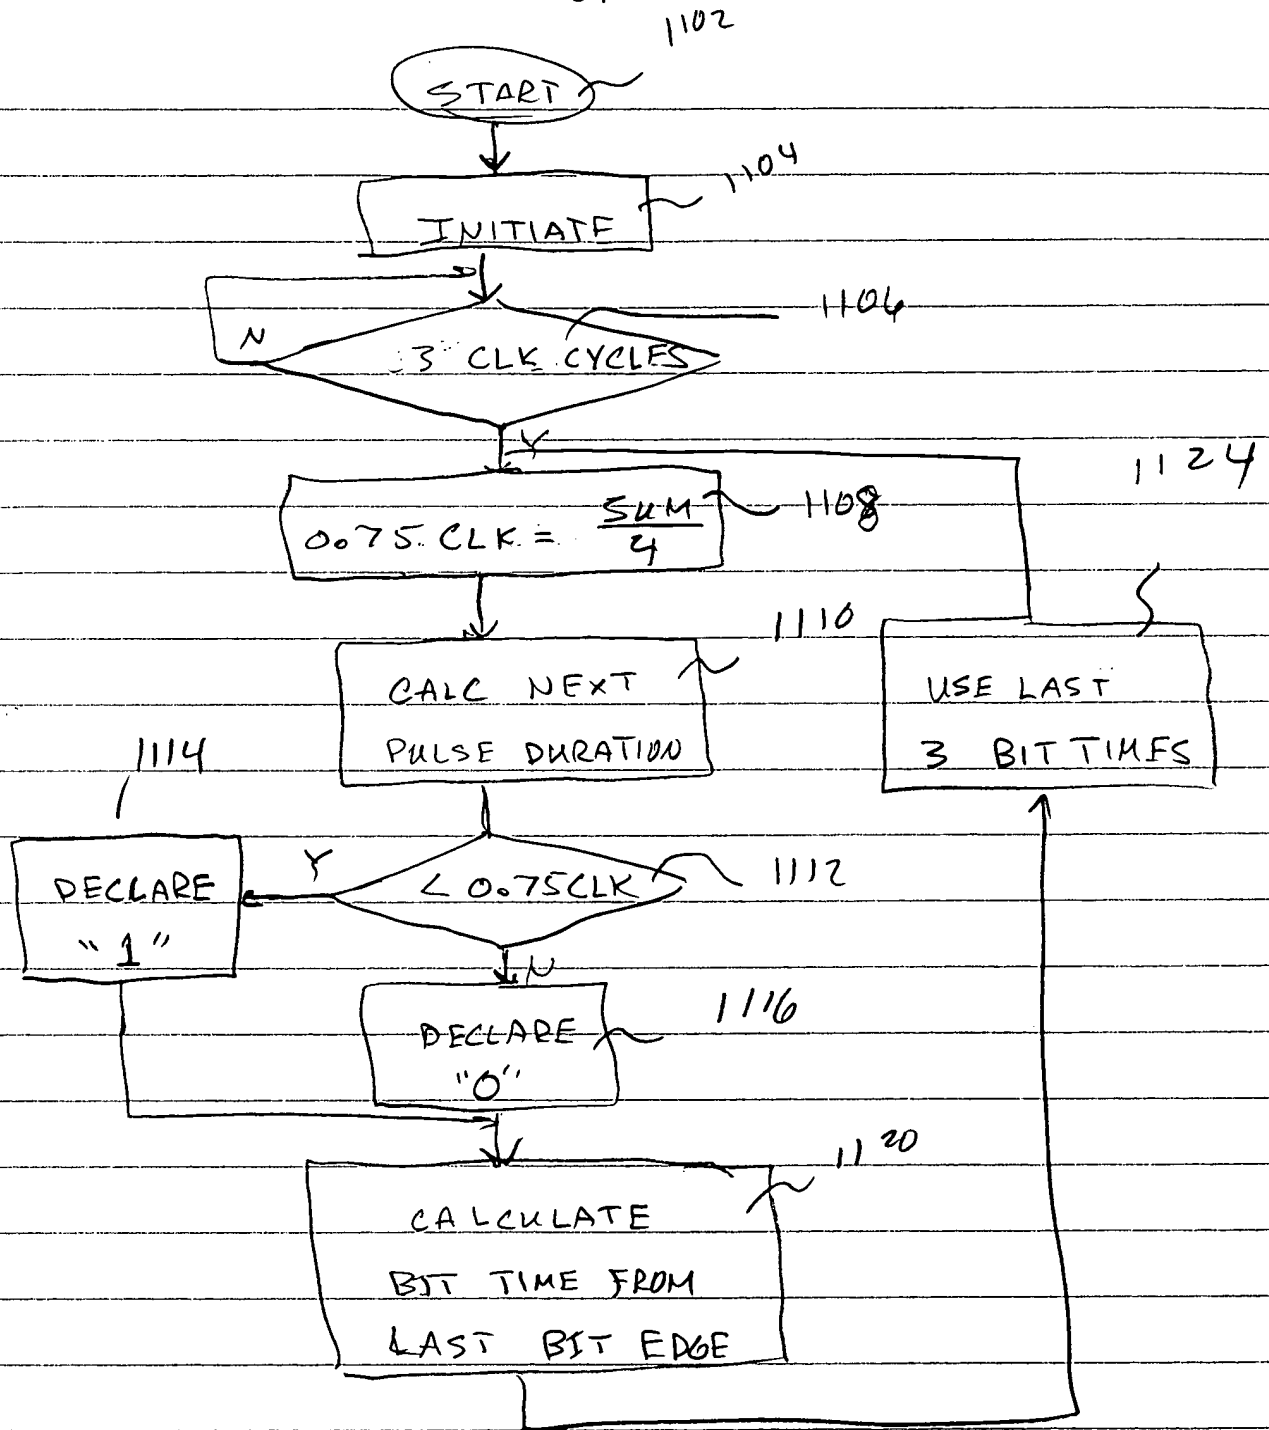 1102
START
1104
INITIATE
1106
N
3 CLK CYCLES
Y
1124
0.75 CLK = SUM/4
1108
1110
CALC NEXT
PULSE DURATION
USE LAST
3 BIT TIMES
1114
Y
< 0.75CLK
1112
DECLARE
"1"
N
1116
DECLARE
"0"
1120
CALCULATE
BIT TIME FROM
LAST BIT EDGE